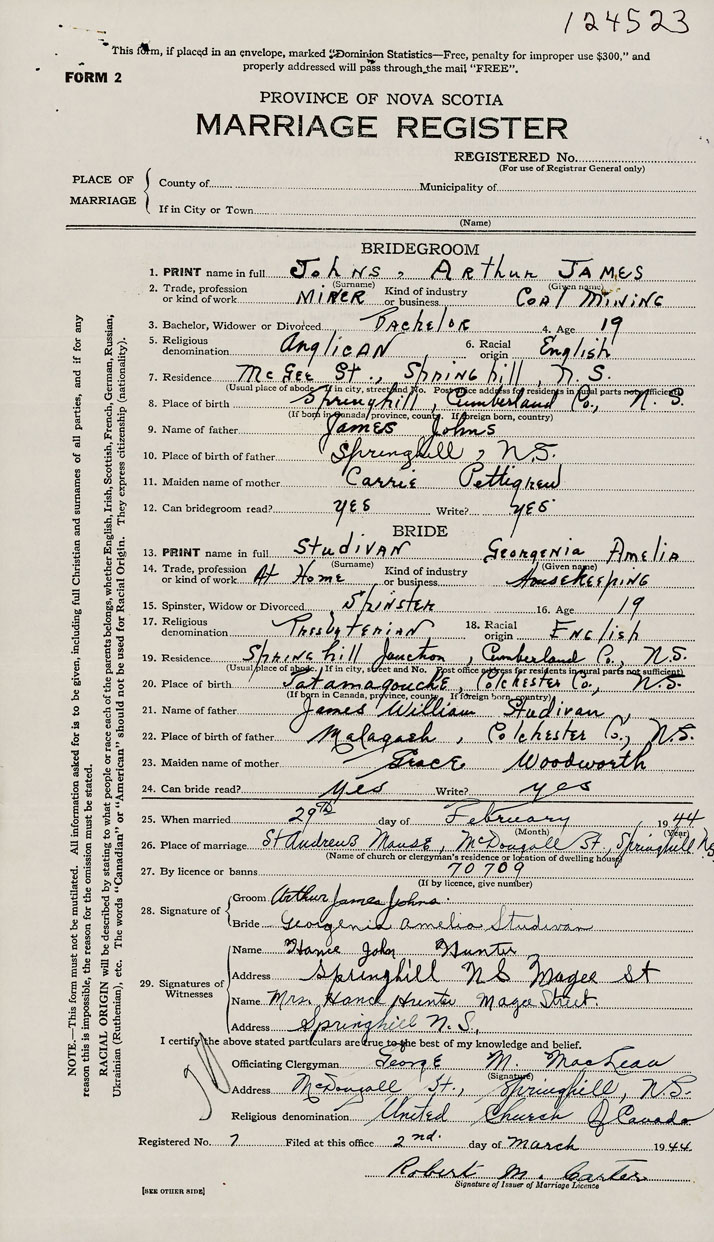 124523
This form, if placed in an envelope, marked "Dominion Statistics—Free, penalty for improper use $300," and
properly addressed will pass through the mail "FREE".
FORM 2
PROVINCE OF NOVA SCOTIA
MARRIAGE REGISTER
REGISTERED No.
(For use of Registrar General only)
PLACE OF MARRIAGE
County of Municipality of
If in City or Town
(Name)
BRIDEGROOM
1. PRINT name in full Johns, Arthur James
(Surname) (Given name)
2. Trade, profession or kind of work Miner Kind of industry or business Coal Mining
3. Bachelor, Widower or Divorced Bachelor 4. Age 19
5. Religious denomination Anglican 6. Racial origin English
7. Residence McGee St., Springhill, N.S.
(Usual place of abode. If in city, street and No. Post office address for residents in rural parts not sufficient)
8. Place of birth Springhill, Cumberland Co., N.S.
(If born in Canada, province, county. If foreign born, country)
9. Name of father James Johns
10. Place of birth of father Springhill, N.S.
11. Maiden name of mother Carrie Pettigrew
12. Can bridegroom read? yes Write? yes
BRIDE
13. PRINT name in full Studivan Georgenia Amelia
(Surname) (Given name)
14. Trade, profession or kind of work At Home Kind of industry or business Housekeeping
15. Spinster, Widow or Divorced Spinster 16. Age 19
17. Religious denomination Presbyterian 18. Racial origin English
19. Residence Springhill Junction, Cumberland Co., N.S.
(Usual place of abode. If in city, street and No. Post office address for residents in rural parts not sufficient)
20. Place of birth Tatamagouche, Colchester Co., N.S.
(If born in Canada, province, county. If foreign born, country)
21. Name of father James William Studivan
22. Place of birth of father Malagash, Colchester Co., N.S.
23. Maiden name of mother Grace Woodworth
24. Can bride read? yes Write? yes
25. When married 29th day of February 1944
(Month) (Year)
26. Place of marriage St Andrews Manse, McDougall St., Springhill N.S.
(Name of church or clergyman's residence or location of dwelling house)
27. By licence or banns 70709
(If by licence, give number)
28. Signature of
Groom Arthur James Johns
Bride Georgenia Amelia Studivan
29. Signatures of Witnesses
Name John Hunter
Address Springhill NS Magee St
Name Mrs. Hunter Magee Street.
Address Springhill N.S.,
I certify the above stated particulars are true to the best of my knowledge and belief.
Officiating Clergyman George M. MacLean
(Signature)
Address McDougall St., Springhill, N.S.
Religious denomination United Church of Canada
Registered No. 7 Filed at this office 2nd. day of March 1944
Robert M. Carter
Signature of Issuer of Marriage Licence
[SEE OTHER SIDE]
NOTE.—This form must not be mutilated. All information asked for is to be given, including full Christian and surnames of all parties, and if for any
reason this is impossible, the reason for the omission must be stated.
RACIAL ORIGIN will be described by stating to what people or race each of the parents belongs, whether English, Irish, Scottish, French, German, Russian,
Ukrainian (Ruthenian), etc. The words "Canadian" or "American" should not be used for Racial Origin. They express citizenship (nationality).